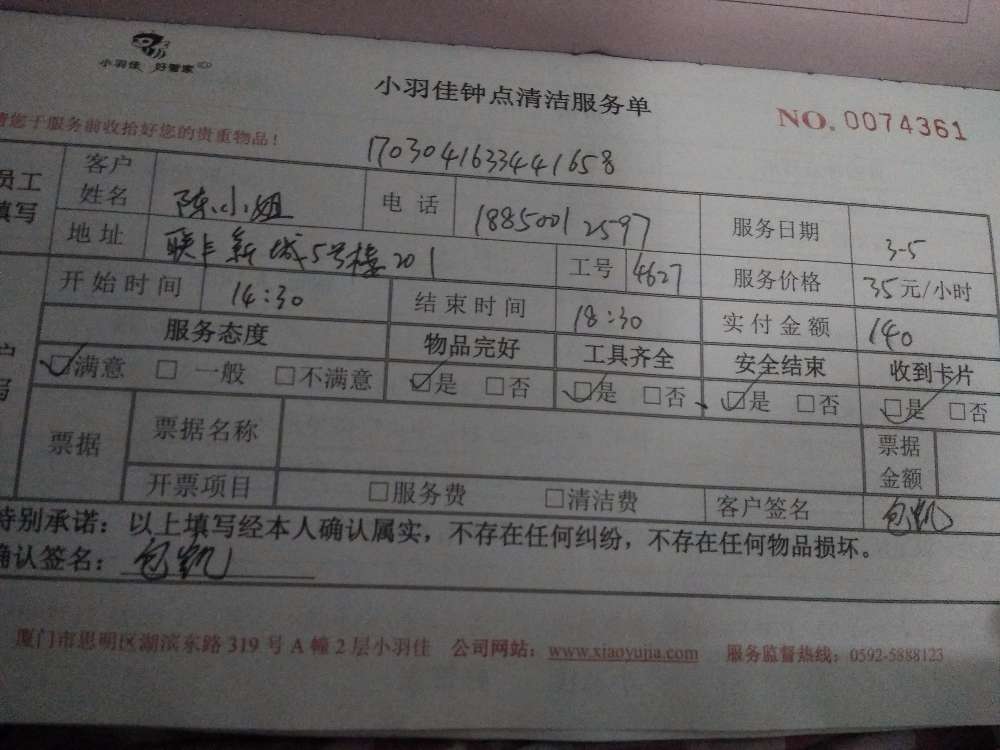 小羽佳 好管家
小羽佳钟点清洁服务单
NO. 0074361
请您于服务前收拾好您的贵重物品！
170304163344 1658
员工填写 客户姓名 陈小姐 电话 18850012597 服务日期 3-5
地址 联丰新城5号楼201 工号 4627 服务价格 35元/小时
开始时间 14:30 结束时间 18:30 实付金额 140
服务态度 物品完好 工具齐全 安全结束 收到卡片
☑满意 □一般 □不满意 ☑是 □否 ☑是 □否 ☑是 □否 ☑是 □否
票据 票据名称 票据金额
开票项目 □服务费 □清洁费 客户签名 包凯
特别承诺：以上填写经本人确认属实，不存在任何纠纷，不存在任何物品损坏。
确认签名：包凯
厦门市思明区湖滨东路319号A幢2层小羽佳 公司网站：www.xiaoyujia.com 服务监督热线：0592-5888123